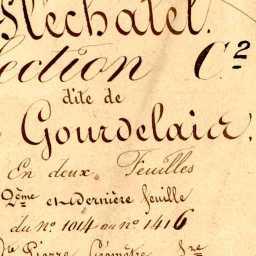 Fléchatel.
Section C²
dite de
Gourdelair.
En deux Feuilles
2ème et dernière feuille
du no. 1014 au no. 1416
Pierre Géomètre